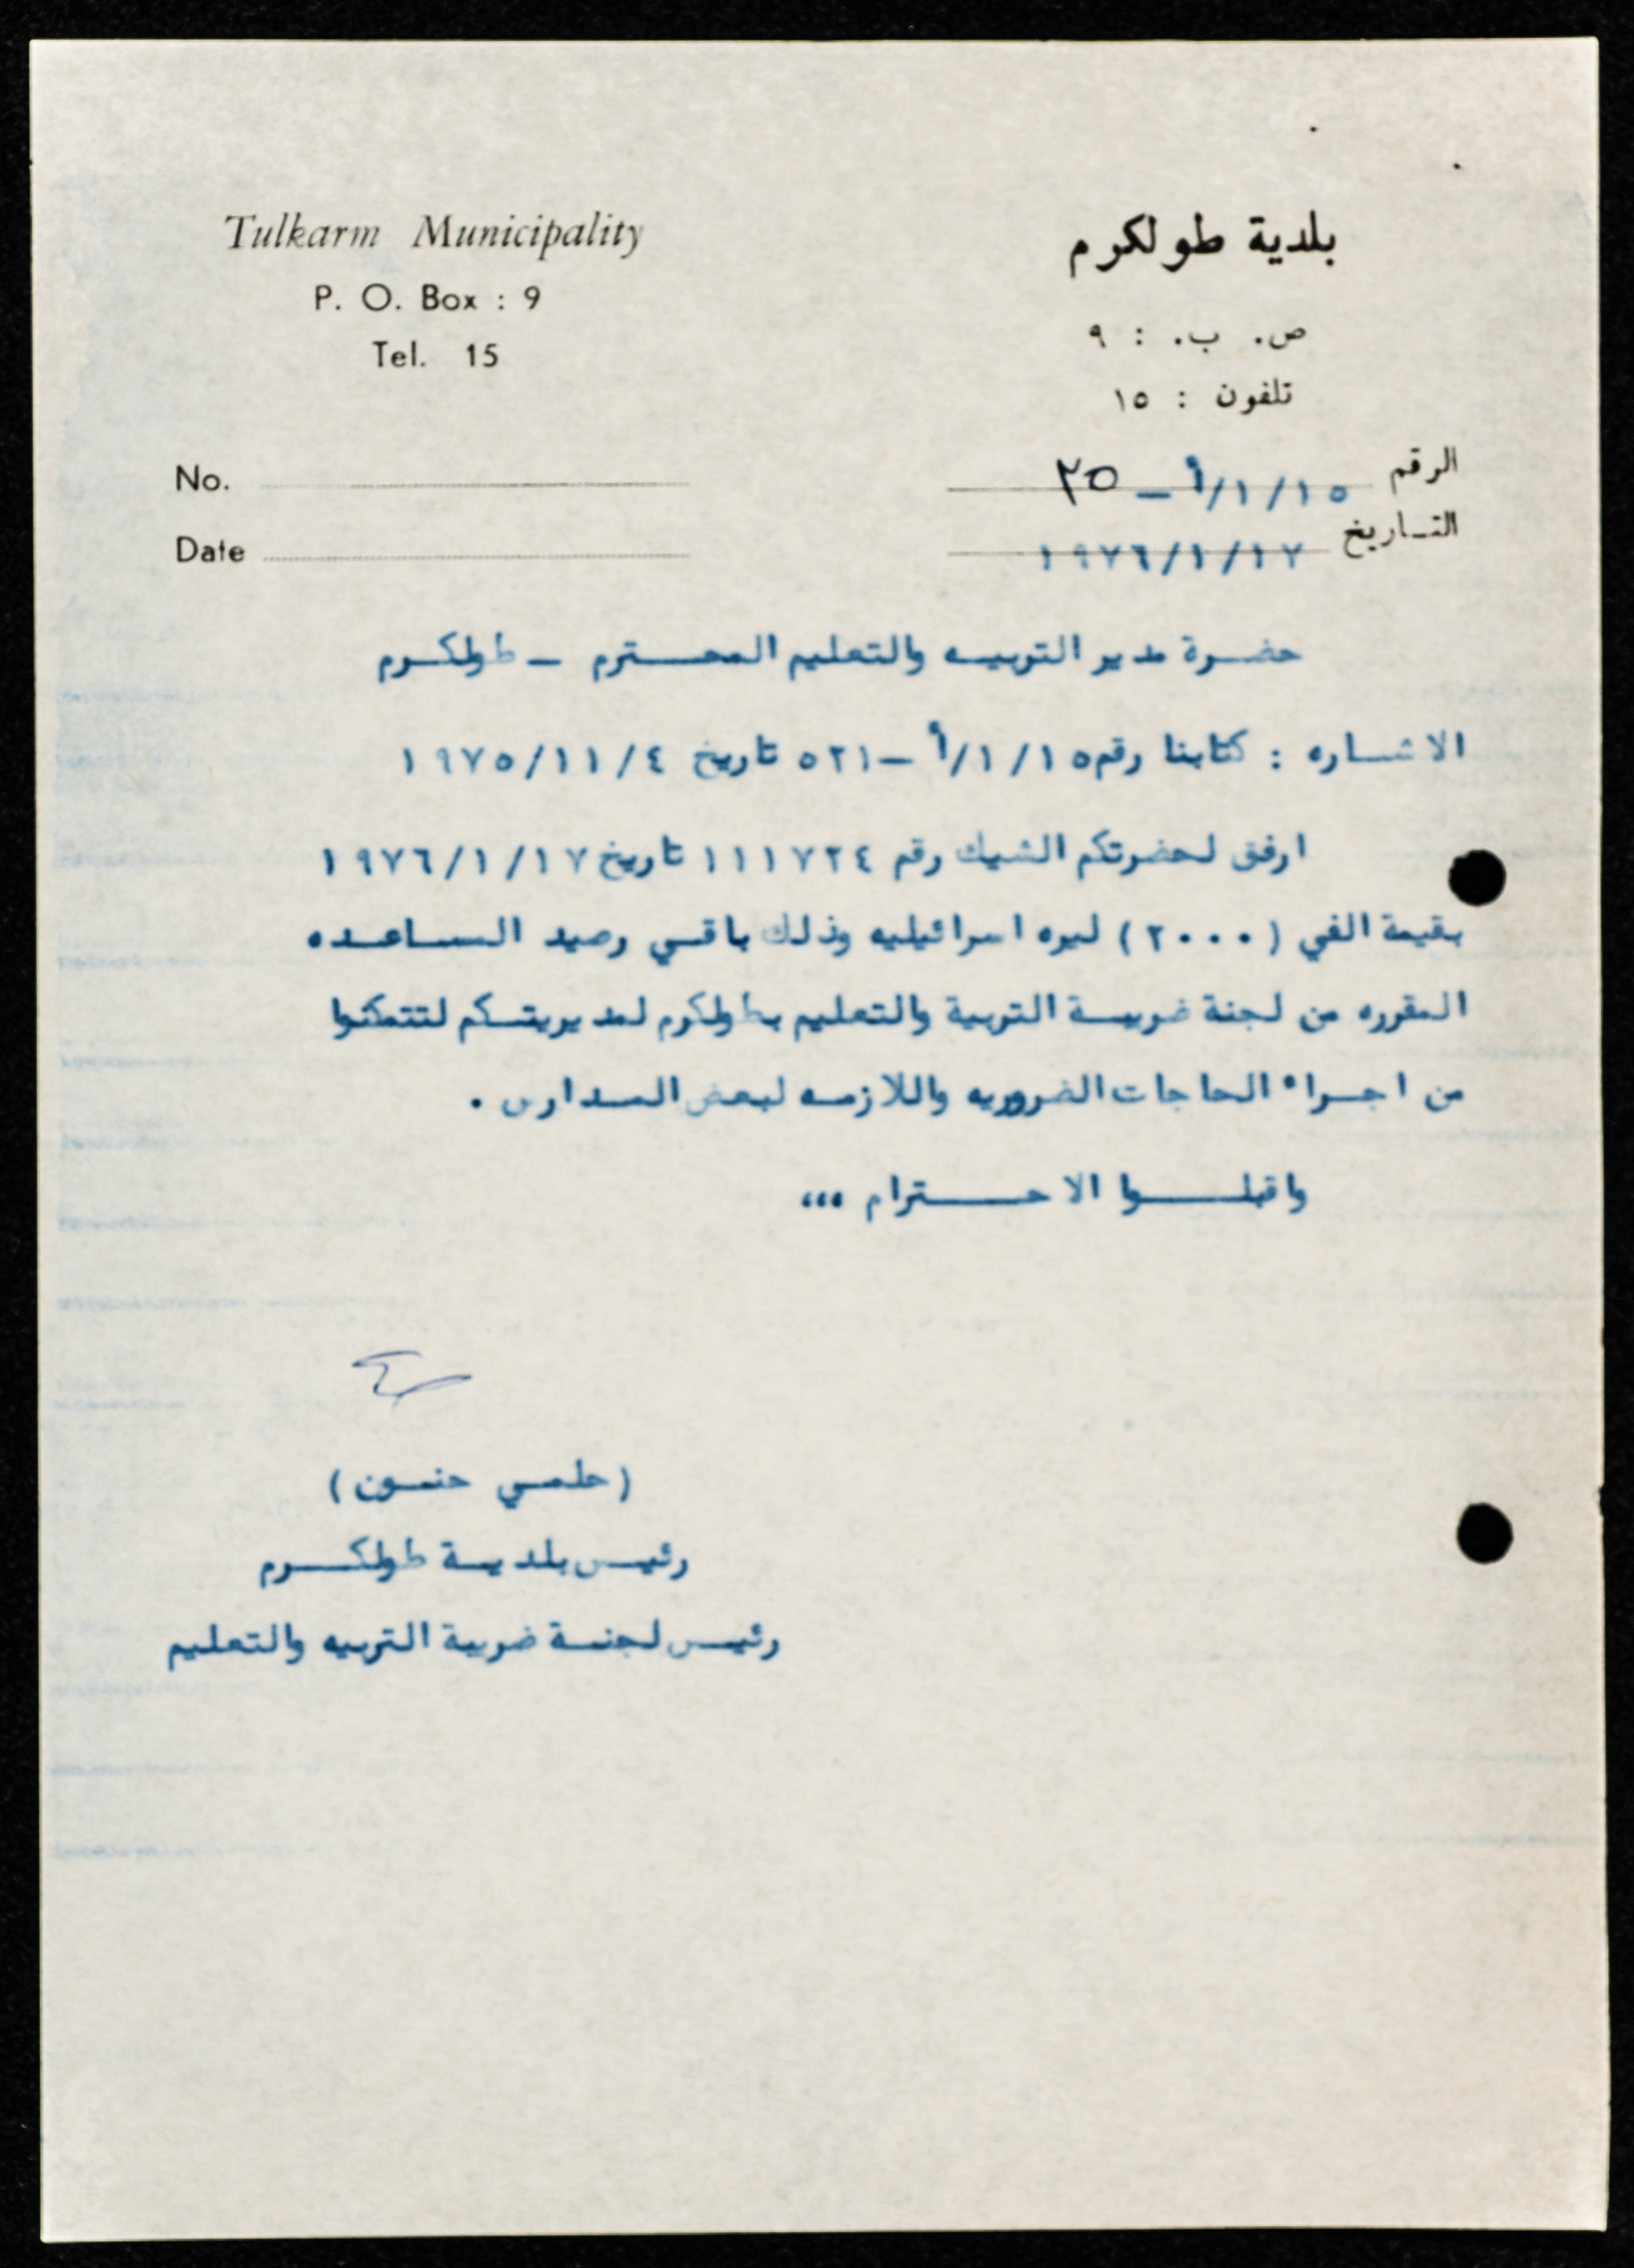 Tulkarm Municipality
P. O. Box : 9
Tel. 15
No.
Date
بلدية طولكرم
ص. ب. : ٩
تلفون : ١٥
الرقم ١٥/١/أ - ٢٥
التـاريخ ١٩٧٦/١/١٧
حضرة مدير التربيه والتعليم المحترم - طولكرم
الاشاره : كتابنا رقم ١٥/١/أ - ٥٢١ تاريخ ١٩٧٥/١١/٤
ارفق لحضرتكم الشيك رقم ١١١٧٢٤ تاريخ ١٩٧٦/١/١٧
بقيمة الفي (٢٠٠٠) ليره اسرائيليه وذلك باقي رصيد المساعده
المقرره من لجنة ضريبة التربية والتعليم بطولكرم لمديريتكم لتتمكنوا
من اجراء الحاجات الضروريه واللازمه لبعض المدارس .
واقبلوا الاحترام ،،،
(حلمي حنون)
رئيس بلدية طولكرم
رئيس لجنة ضريبة التربيه والتعليم